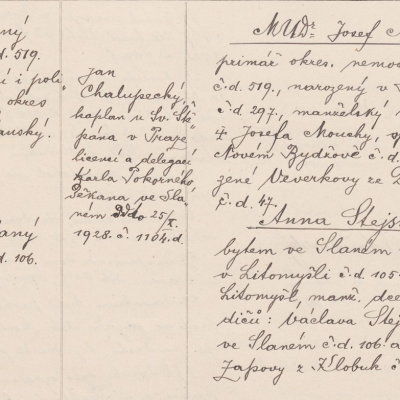 ný
d. 519.
í i poli
okres
anský.
aný
d. 106.
Jan
Chalupecký,
kaplan u Sv. Ště
pána v Praze
licencí a delegací
Karla Pokorného,
Děkana ve Sla-
ném ddto 25/X.
1928. č. 1104. d.
MUDr. Josef
primář okres. nemoc
č.d. 519., narozený v
č.d. 297., manželský
† Josefa Mouchy,
Novém Bydžově č.d.
zené Veverkovy ze
č.d. 47.
Anna Stejs
bytem ve Slaném
v Litomyšli č.d. 105.
Litomyšl, manž. dce
dičů: Václava Stej
ve Slaném č.d. 106. a
Zapovy z Klobuk č